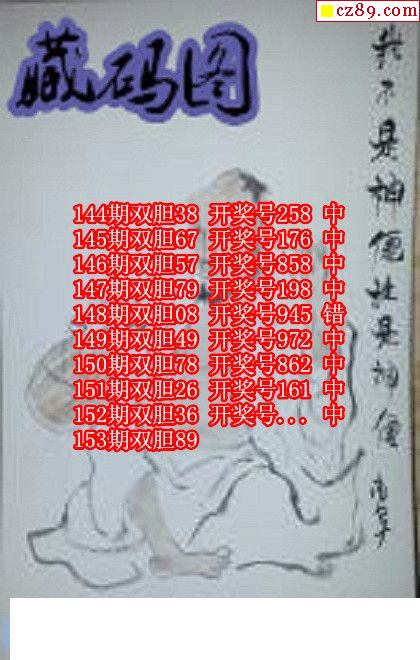 cz89.com
藏码图
我不是神但就是神僊
144期双胆38 开奖号258 中
145期双胆67 开奖号176 中
146期双胆57 开奖号858 中
147期双胆79 开奖号198 中
148期双胆08 开奖号945 错
149期双胆49 开奖号972 中
150期双胆78 开奖号862 中
151期双胆26 开奖号161 中
152期双胆36 开奖号... 中
153期双胆89